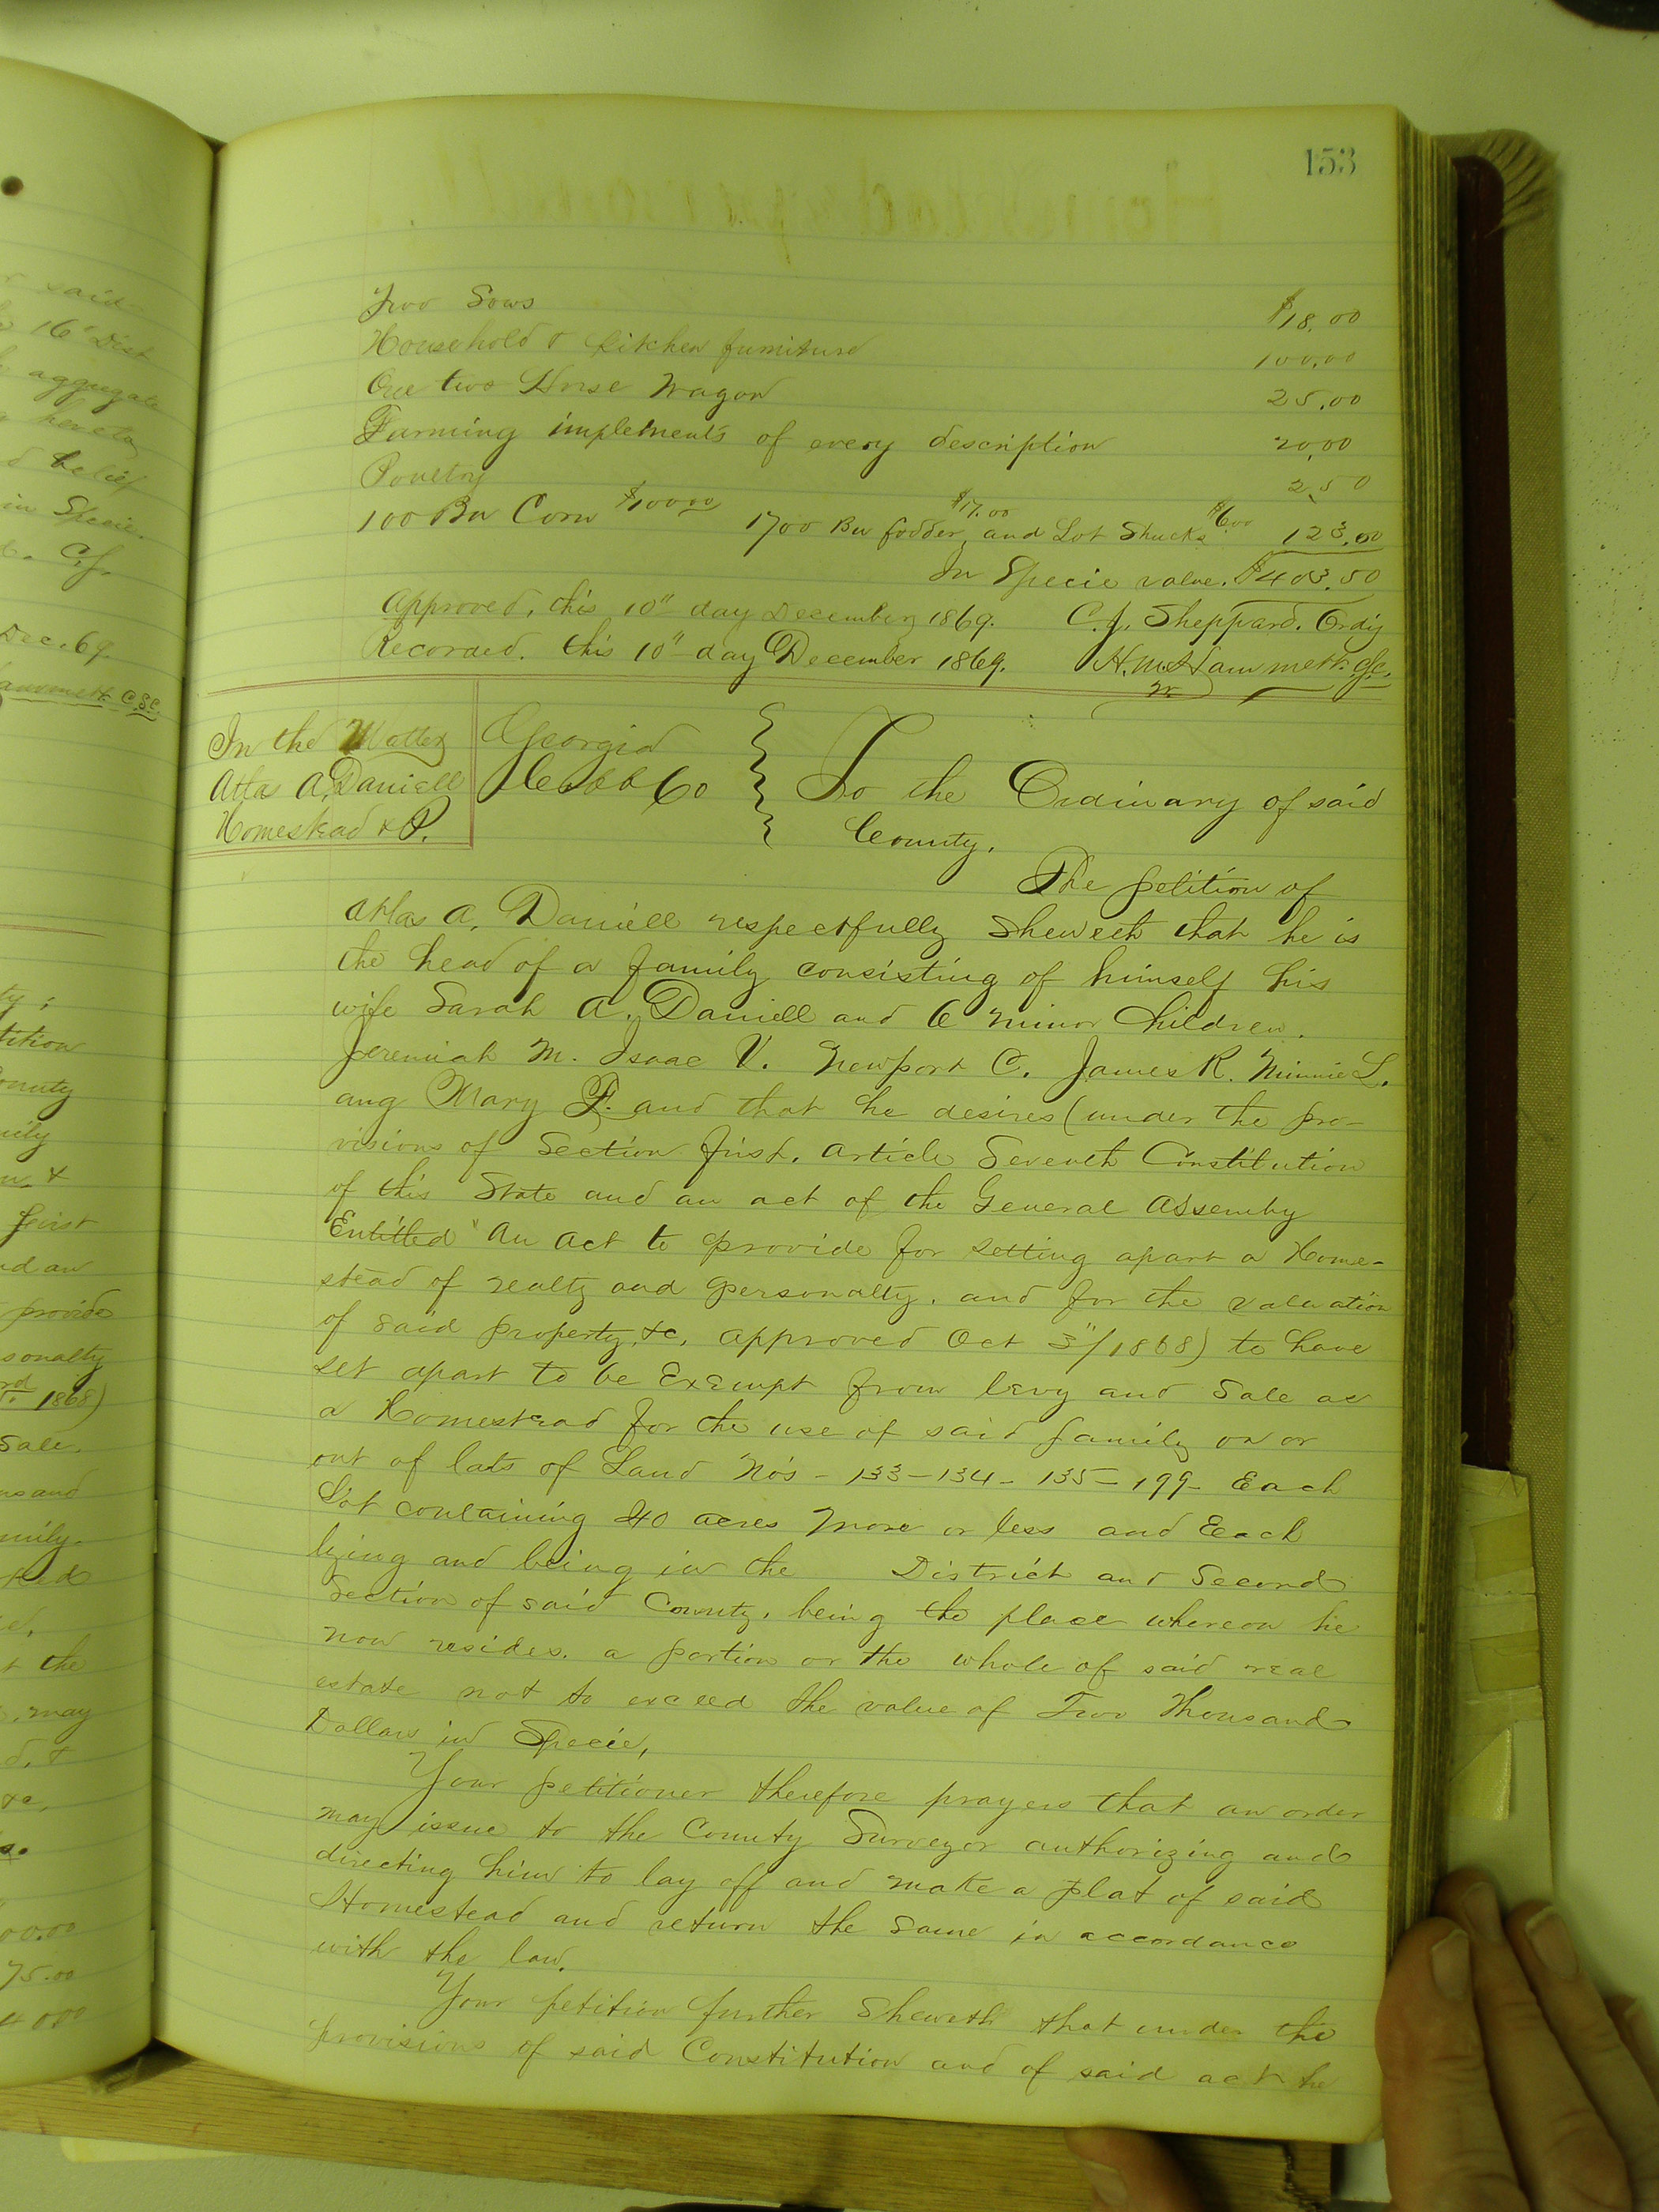 153
Two Sows $18.00
Household & Kitchen furniture 100.00
One two Horse Wagon 25.00
Farming implements of every description 20.00
Poultry 2.50
100 Bu Corn $100.00 1700 Bu fodder, $17.00 and Lot Shucks $6.00 123.00
In Specie value. $403.50
Approved, this 10" day December 1869. C. J. Sheppard. Ordiy
Recorded. this 10" day December 1869. H. M. Hammett. CSC.
In the Matter
Atla A. Daniell
Homestead & P.
Georgia
Cobb Co
To the Ordinary of said
County.
The petition of
Atlas A. Daniell respectfully Sheweth that he is
the head of a family consisting of himself his
wife Sarah A. Daniell and 6 minor Children.
Jeremiah M. Isaac V. Newport C. James R. Minnie L.
ang Mary F. and that he desires (under the pro-
visions of Section first. Article Seventh Constitution
of this State and an act of the General Assembly
Entitled "An Act to provide for setting apart a Home-
stead of realty and personalty. and for the valuation
of said property, &c, approved Oct 3"/1868) to have
set apart to be Exempt from levy and Sale as
a Homestead for the use of said family on or
out of lots of Land No's - 133 - 134 - 135 - 199 - Each
Lot containing 40 acres more or less and Each
lying and being in the District and Second
Section of said County. being the place whereon he
now resides. a portion or the whole of said real
estate not to exceed the value of Two Thousand
Dollars in Specie,
Your petitioner therefore prayers that an order
may issue to the County Surveyor authorizing and
directing him to lay off and make a plat of said
Homestead and return the same in accordance
with the law.
Your petition further Sheweth that under the
provisions of said Constitution and of said act he